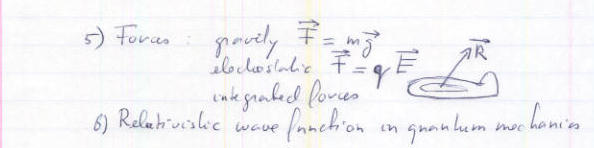 5) Forces : gravity F⃗ = mg⃗
electrostatic F⃗ = qE⃗
R⃗
integrated forces
6) Relativistic wave function in quantum mechanics